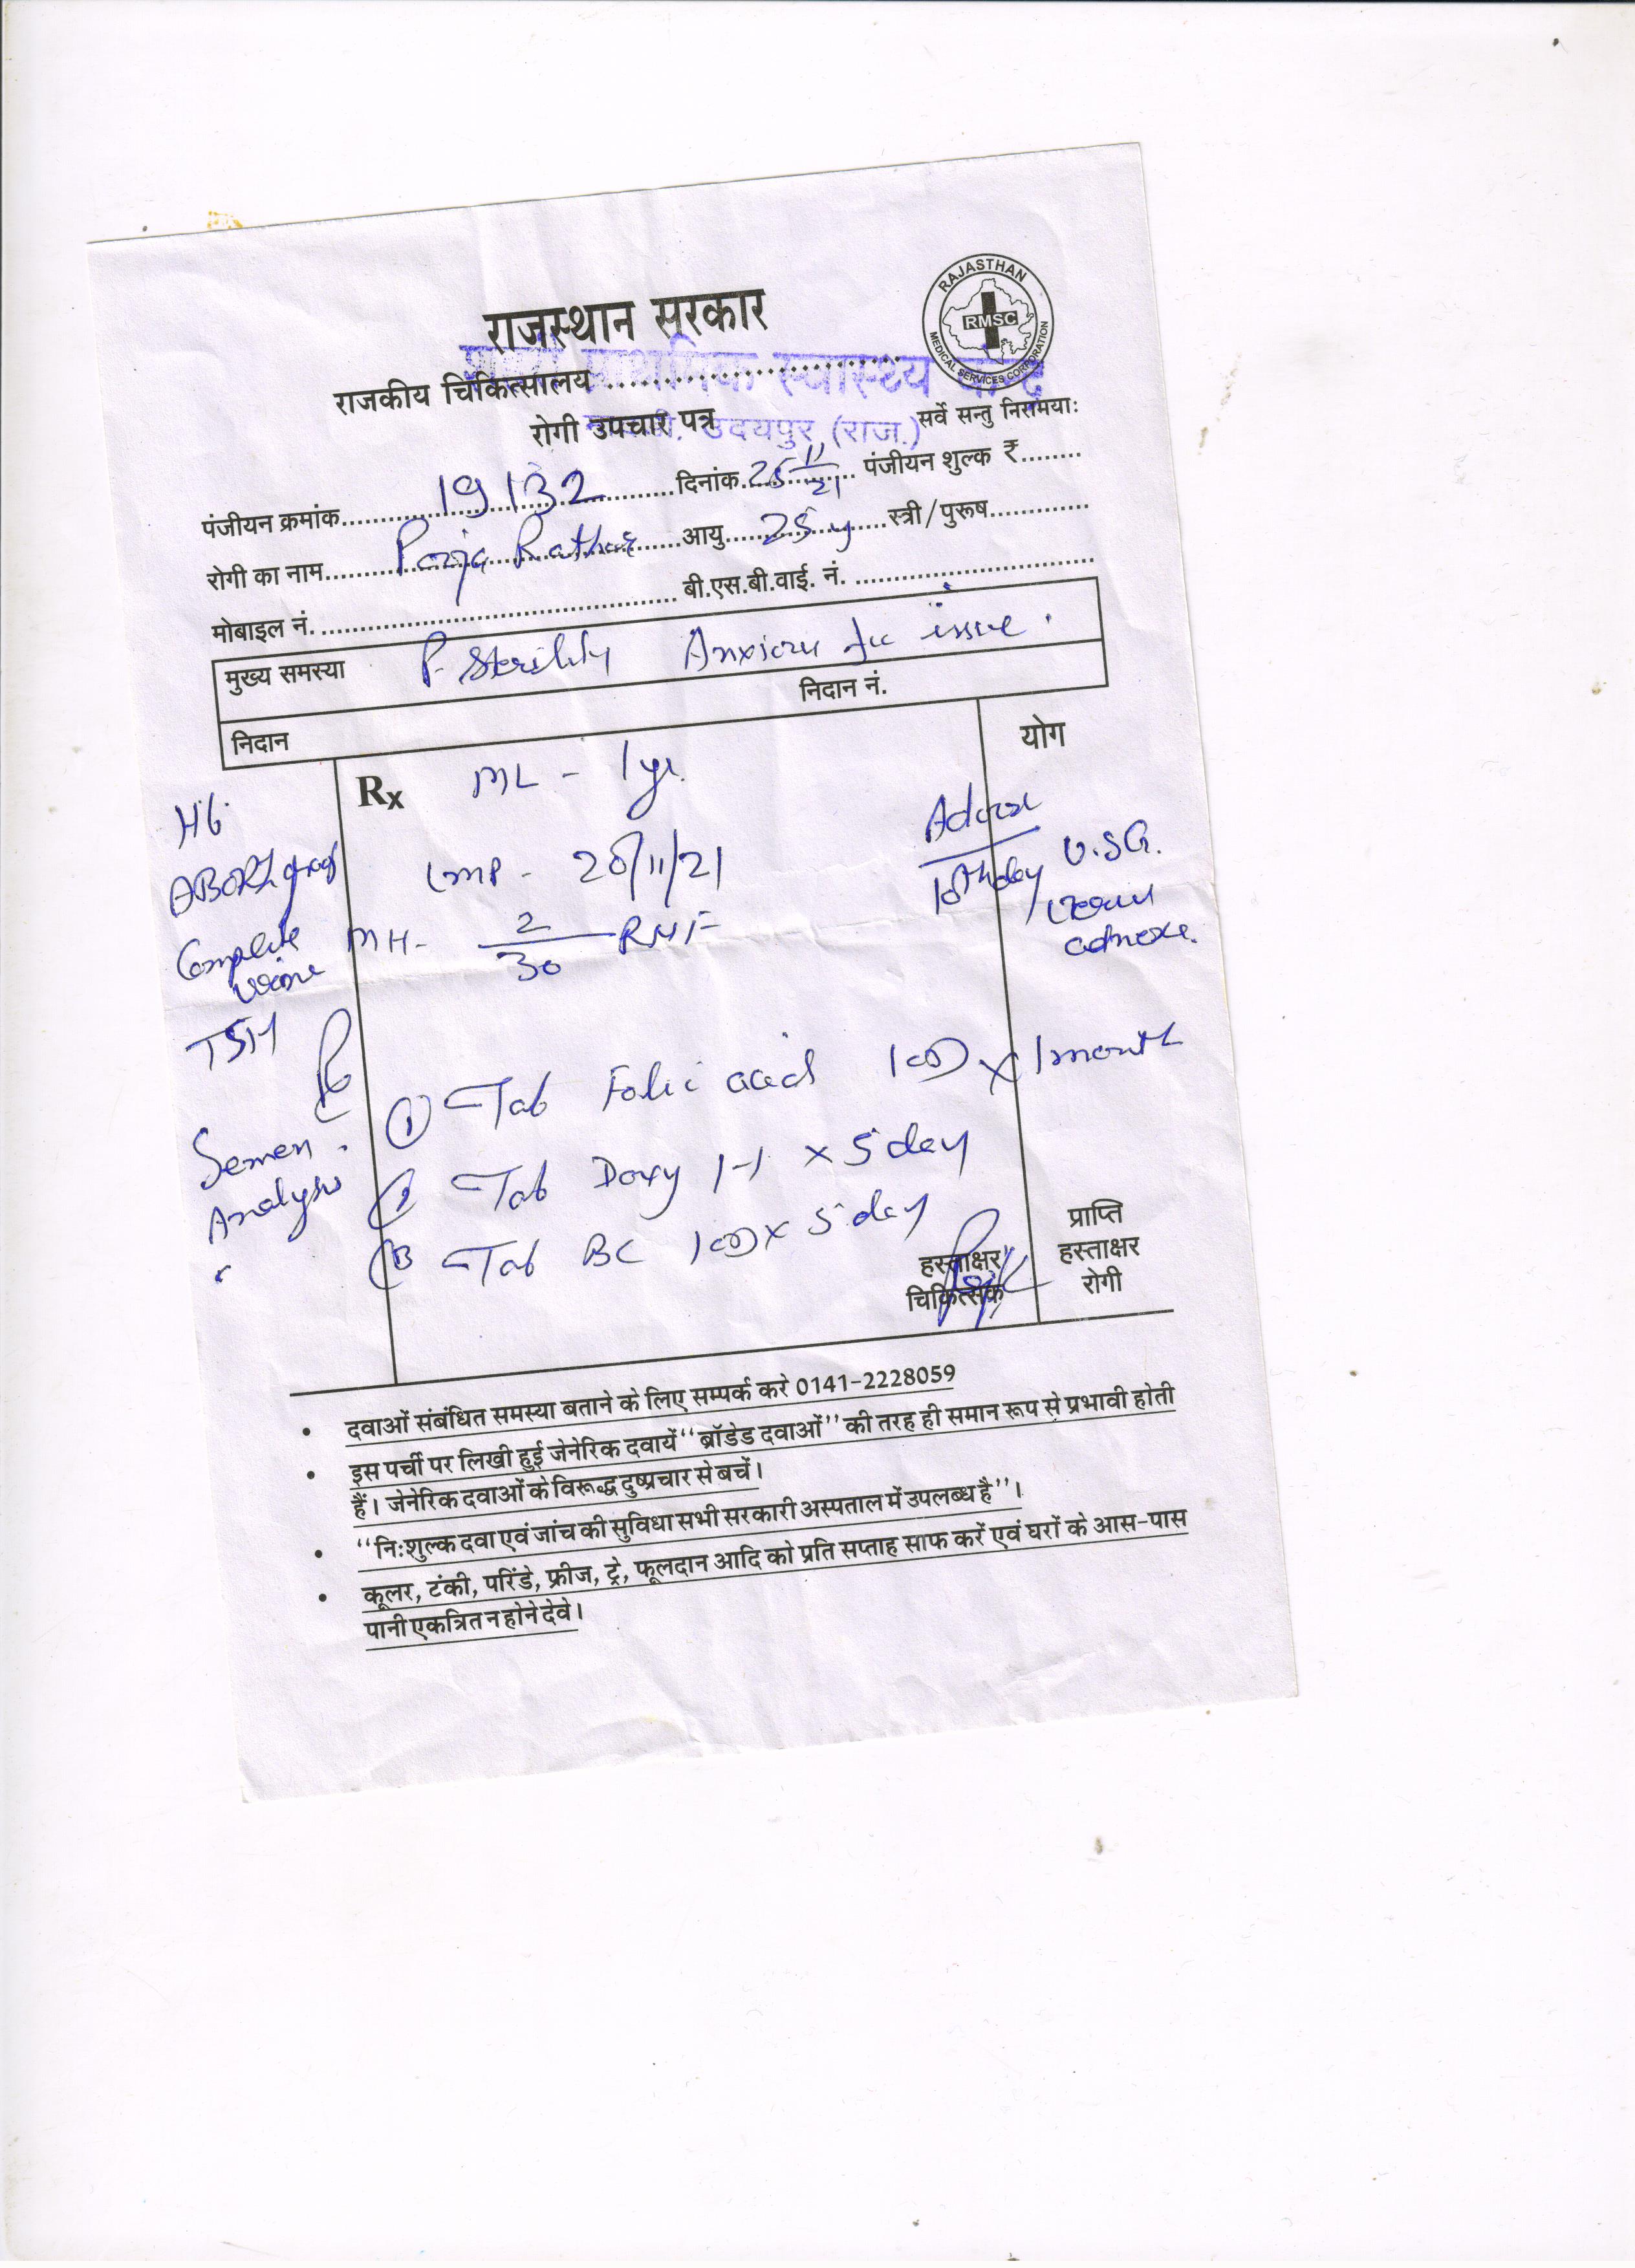 राजस्थान सरकार
RAJASTHAN
RMSC
MEDICAL SERVICES CORPORATION
राजकीय चिकित्सालय ........................
प्राथमिक स्वास्थ्य केन्द्र
रोगी उपचार पत्र
उदयपुर (राज.)
सर्वे सन्तु निरामयाः
पंजीयन क्रमांक 19132 दिनांक 25/11/21 पंजीयन शुल्क ₹........
रोगी का नाम Pooja Rathor आयु 25 y स्त्री/पुरूष.............
मोबाइल नं. ........................ बी.एस.बी.वाई. नं. ........................
मुख्य समस्या P. Sterility Anxious for issue.
निदान निदान नं.
Rx ML - 1yr. योग
Hb
ABORh
Complete urine
TSH
Semen Analysis
LMP - 20/11/21
MH- 2/30 RMF
Advise
10th day U.S.G.
adnexa.
① Tab Folic acid 1 OD x 1 month
② Tab Doxy 1-1 x 5 day
③ Tab BC 1 OD x 5 day
हस्ताक्षर
चिकित्सक
प्राप्ति
हस्ताक्षर
रोगी
• दवाओं संबंधित समस्या बताने के लिए सम्पर्क करे 0141-2228059
• इस पर्ची पर लिखी हुई जेनेरिक दवायें "ब्रॉडेड दवाओं" की तरह ही समान रूप से प्रभावी होती
हैं। जेनेरिक दवाओं के विरूद्ध दुष्प्रचार से बचें।
• "निःशुल्क दवा एवं जांच की सुविधा सभी सरकारी अस्पताल में उपलब्ध है"।
• कूलर, टंकी, परिंडे, फ्रीज, ट्रे, फूलदान आदि को प्रति सप्ताह साफ करें एवं घरों के आस-पास
पानी एकत्रित न होने देवे।